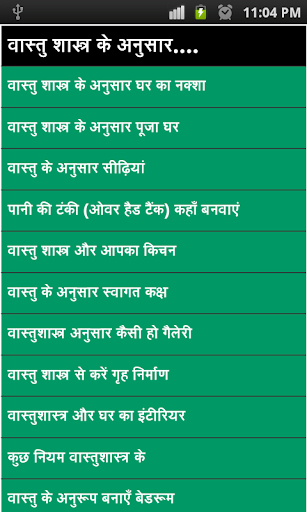 11:04 PM
वास्तु शास्त्र के अनुसार....
वास्तु शास्त्र के अनुसार घर का नक्शा
वास्तु शास्त्र के अनुसार पूजा घर
वास्तु के अनुसार सीढ़ियां
पानी की टंकी (ओवर हैड टैंक) कहाँ बनवाएं
वास्तु शास्त्र और आपका किचन
वास्तु के अनुसार स्वागत कक्ष
वास्तुशास्त्र अनुसार कैसी हो गैलेरी
वास्तु शास्त्र से करें गृह निर्माण
वास्तुशास्त्र और घर का इंटीरियर
कुछ नियम वास्तुशास्त्र के
वास्तु के अनुरूप बनाएँ बेडरूम